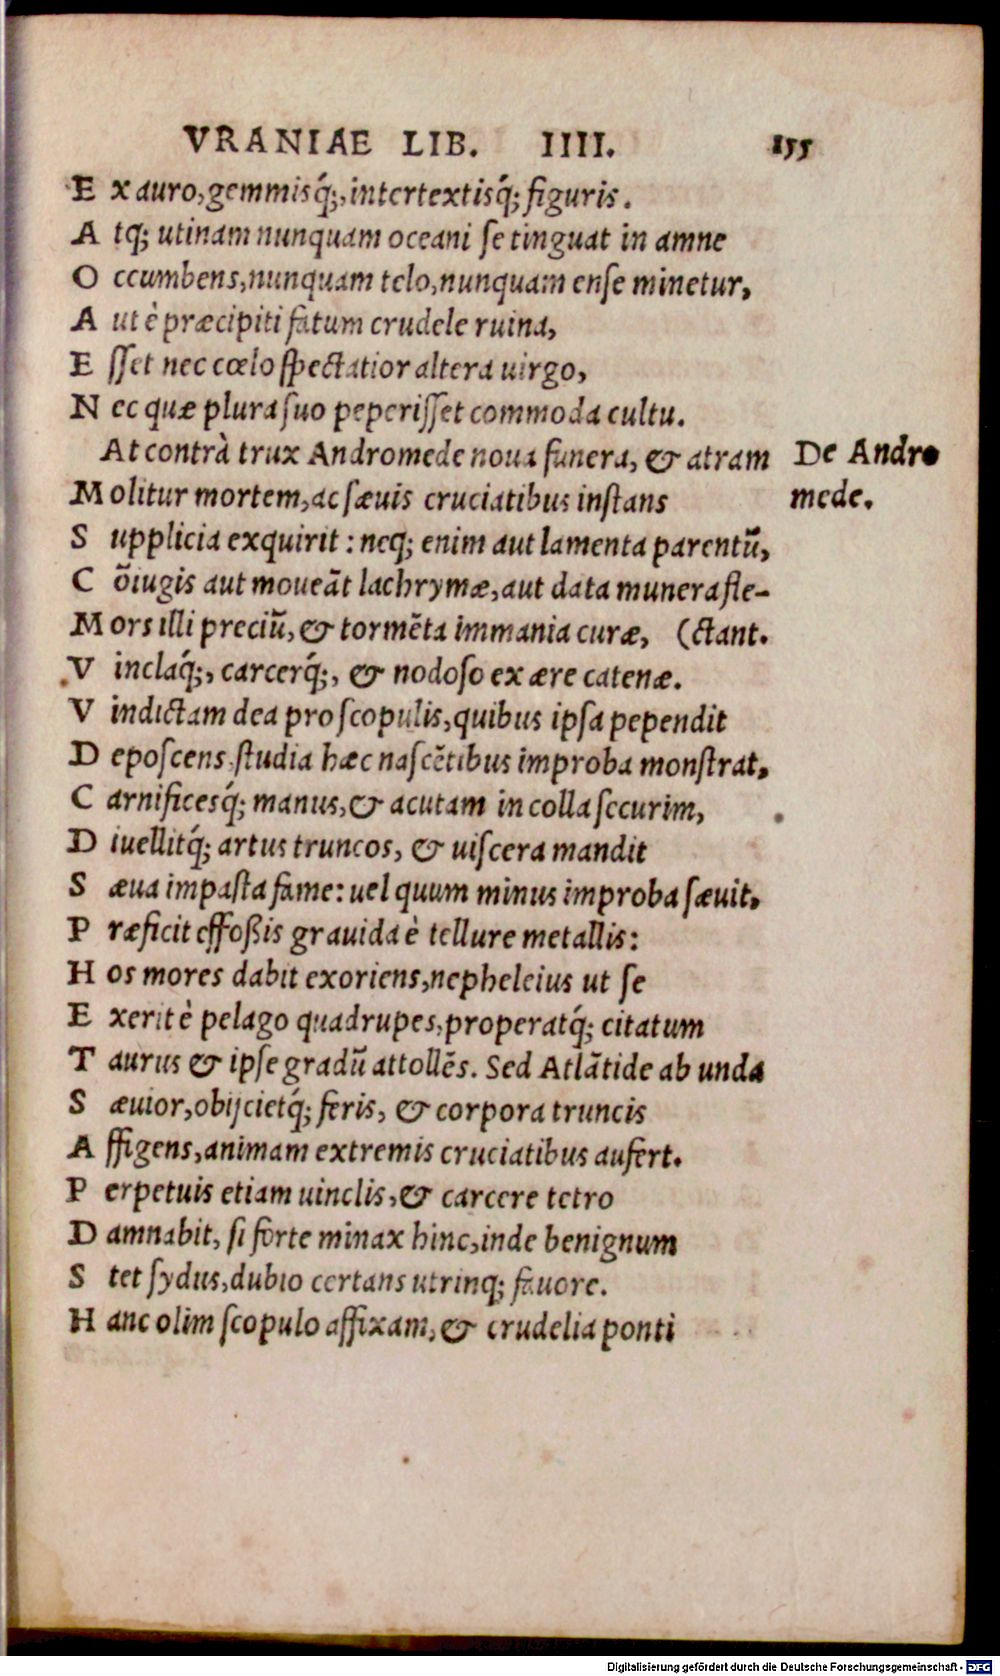 VRANIAE LIB. IIII. 155
E x auro, gemmisq́;, intertextisq́; figuris.
A tq; utinam nunquam oceani se tinguat in amne
O ccumbens, nunquam telo, nunquam ense minetur,
A ut è præcipiti fatum crudele ruina,
E sset nec cœlo spectatior altera uirgo,
N ec quæ plura suo peperisset commoda cultu.
At contrà trux Andromede noua funera, & atram
De Andro
mede.
M olitur mortem, ac sæuis cruciatibus instans
S upplicia exquirit : neq; enim aut lamenta parentū,
C ōiugis aut moueāt lachrymæ, aut data munera fle-
M ors illi preciū, & tormēta immania curæ, (ctant.
V inclaq́;, carcerq́;, & nodoso ex ære catenæ.
V indictam dea pro scopulis, quibus ipsa pependit
D eposcens, studia hæc nascētibus improba monstrat,
C arnificesq́; manus, & acutam in colla securim,
D iuellitq́; artus truncos, & uiscera mandit
S æua impasta fame: uel quum minus improba sæuit,
P ræficit effoßis grauida è tellure metallis:
H os mores dabit exoriens, nepheleius ut se
E xerit è pelago quadrupes, properatq́; citatum
T aurus & ipse gradū attollēs. Sed Atlātide ab unda
S æuior, obijcietq́; feris, & corpora truncis
A ffigens, animam extremis cruciatibus aufert.
P erpetuis etiam uinclis, & carcere tetro
D amnabit, si forte minax hinc, inde benignum
S tet sydus, dubio certans utrinq; fauore.
H anc olim scopulo affixam, & crudelia ponti
Digitalisierung gefördert durch die Deutsche Forschungsgemeinschaft - DFG